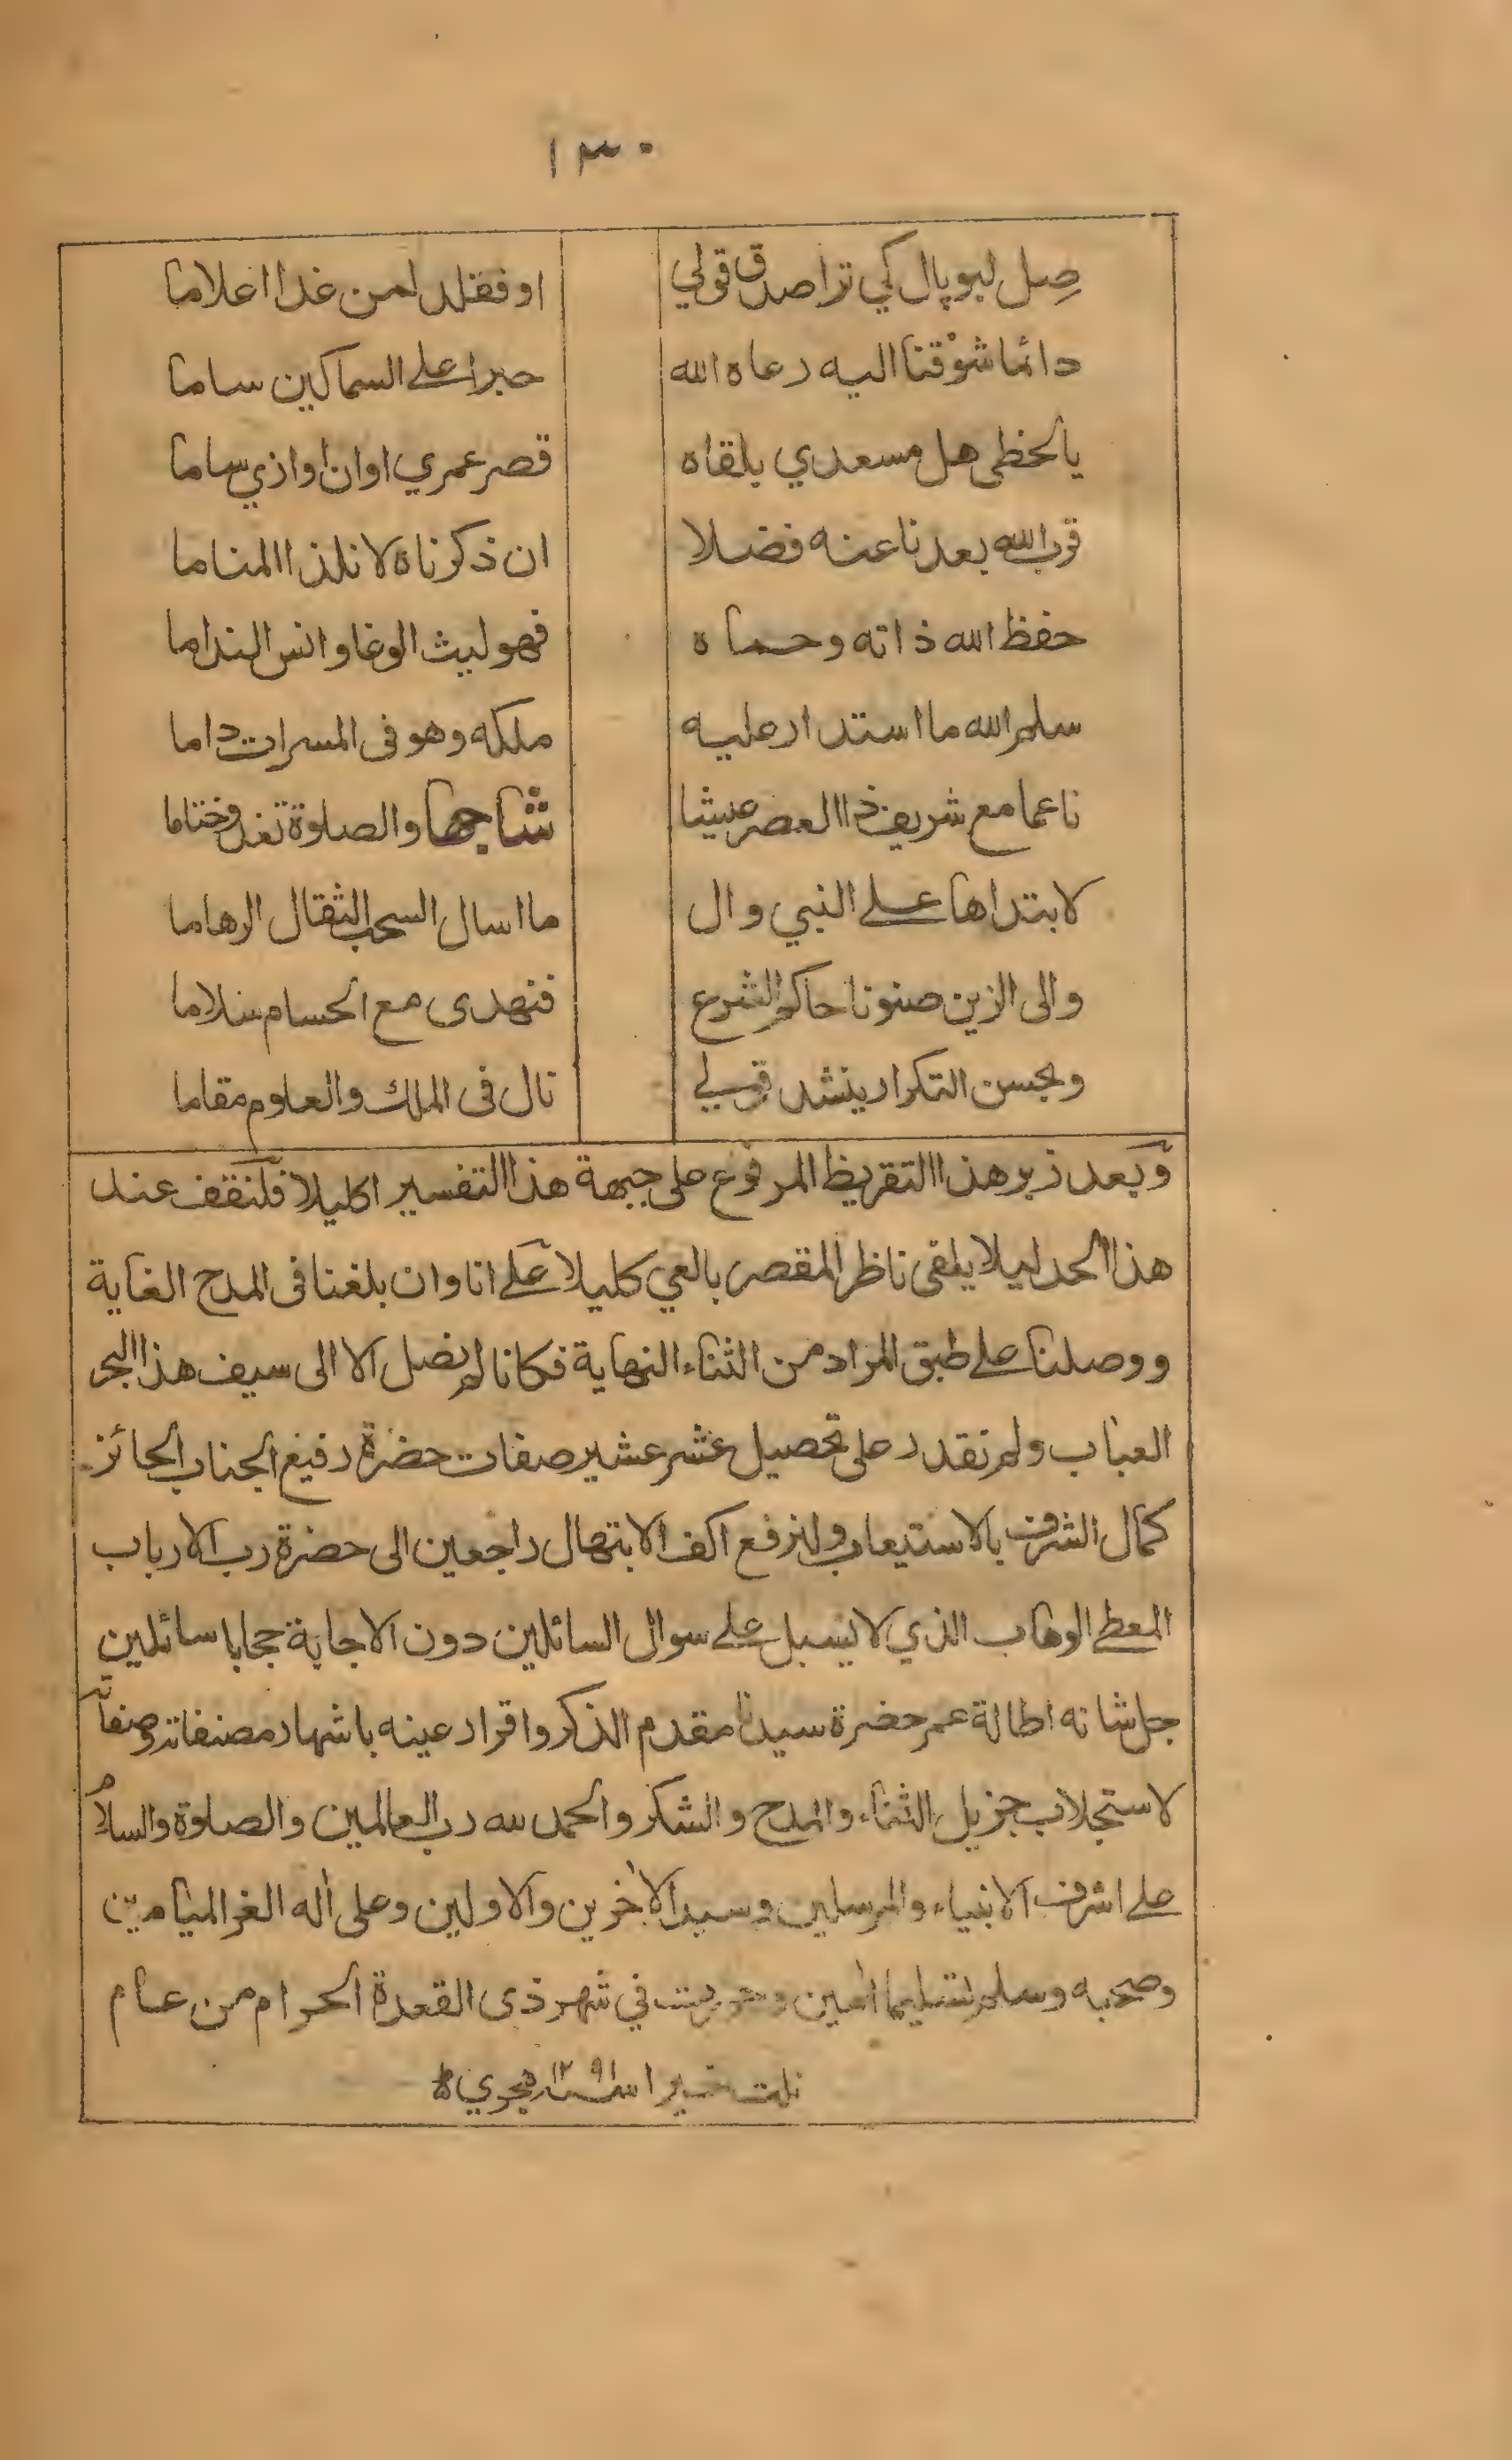 ١٣٠
صِل لبوپال كي ترا صدق قولي اوفقلد لمن غدا اعلاما
دائما شوقنا اليه رعاه الله حبرا على السماكين ساما
يا لحظى هل مسعدي بلقاه قصر عمري اوان اواذي ساما
قرب الله بعدنا عنه فضلا ان ذكرناه لا نلذ المناما
حفظ الله ذاته وحماه فهو ليث الوغا وانس الندا ما
سلم الله ما استدار عليه ملكه وهو فى المسرات داما
ناعما مع شريف ذا العصر عيشا شاجها والصلوة تغدو ختاما
لابتداها على النبي وال ما اسال السحب الثقال الرهاما
والى الزين صنونا حاكم الشرع فنهدى مع الحسام سلاما
وبحسن التكرار ينشد قولي نال فى الملك والعلوم مقاما
وبعد زبر هذا التقريظ المرفوع على جبهة هذا التفسير اكليلا فلنقف عند
هذا الحد ليلا يلقى ناظر المقصر بالعي كليلا على انا وان بلغنا فى المدح الغاية
ووصلنا على طبق المراد من الثناء النهاية فكانا لم نصل الا الى سيف هذا البحر
العباب ولم نقدر على تحصيل عشر عشير صفات حضرة رفيع الجناب الحائز
كمال الشرف بالاستيعاب ولنرفع اكف الابتهال راجعين الى حضرة رب الارباب
المعطى الوهاب الذي لا يسبل على سوال السائلين دون الاجابة حجابا سائلين
جل شانه اطالة عمر حضرة سيدنا مقدم الذكر واقرار عينه باشهار مصنفاته وصفاته
لاستجلاب جزيل الثناء والمدح والشكر والحمد لله رب العالمين والصلوة والسلام
على اشرف الانبياء والمرسلين وسيد الاخرين والاولين وعلى اله الغر الميامين
وصحبه وسلم تسليما امين في شهر ذى القعدة الحرام من عام
نلت خيرا سنة ١٢٩١ هجري